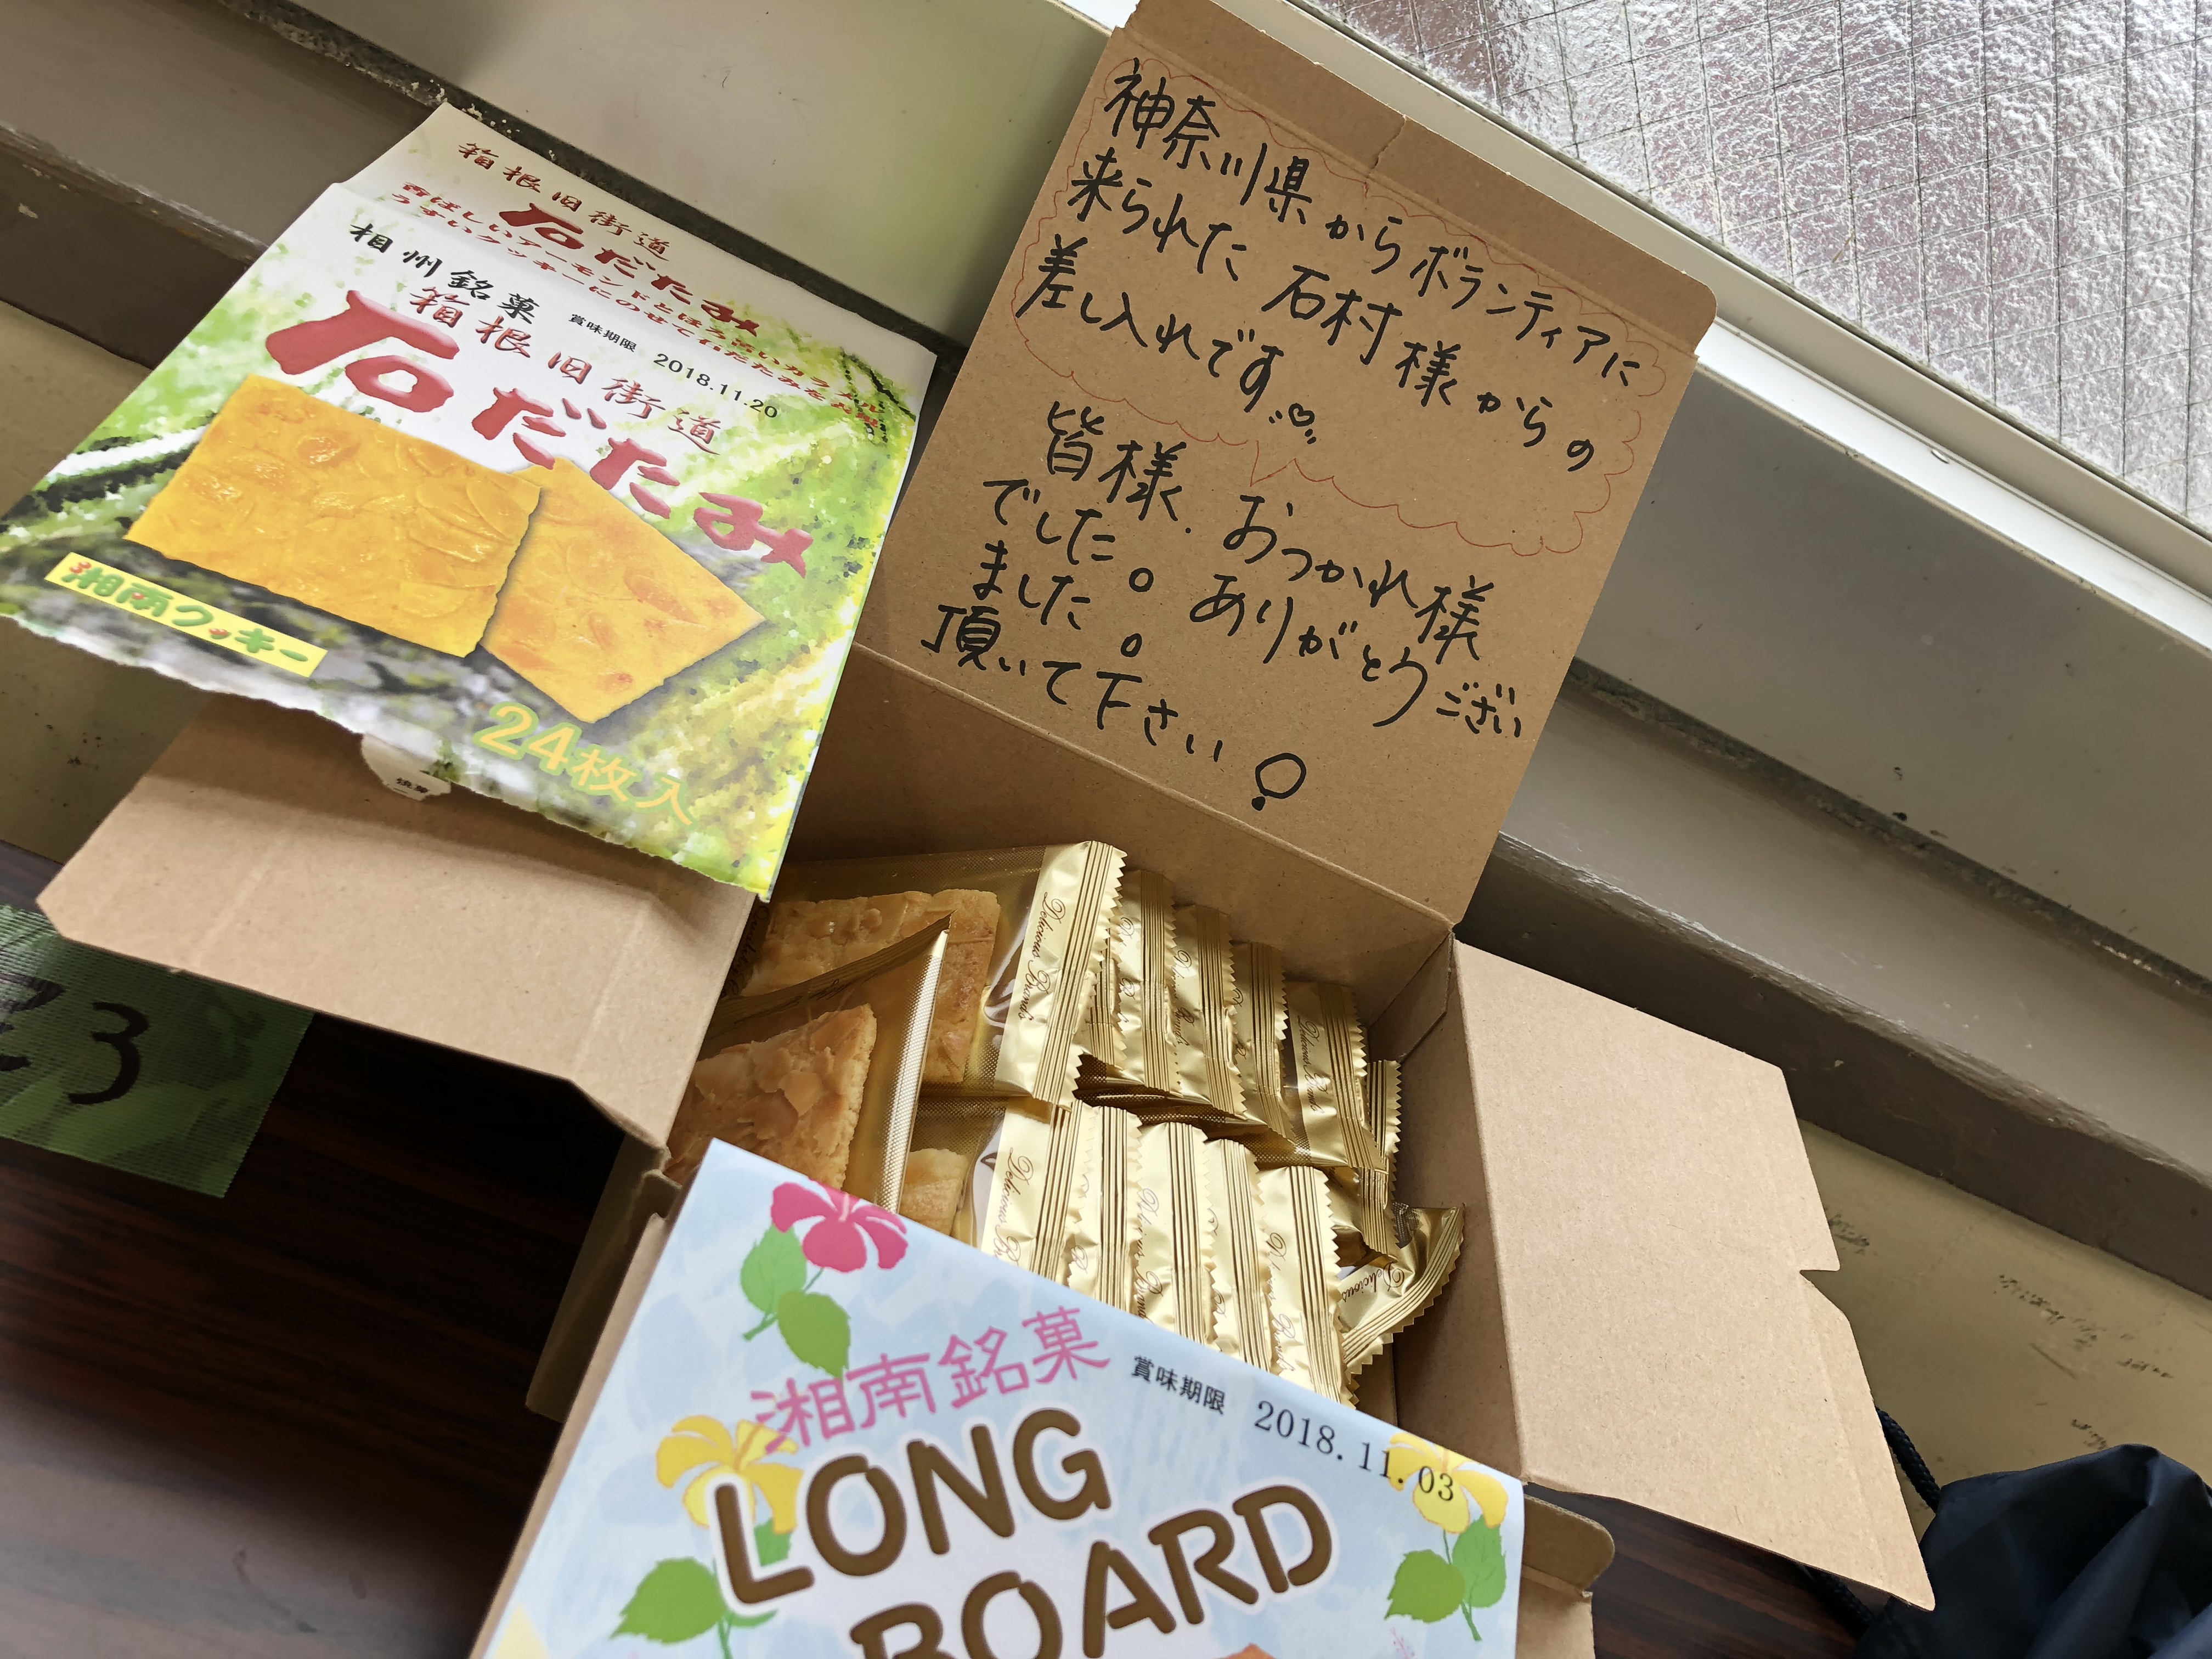 箱根旧街道
石だたみ
香ばしいアーモンドとほろ苦いカラメル
うすいクッキーにのせて石だたみを
相州銘菓
賞味期限 2018.11.20
箱根旧街道
石だたみ
湘南クッキー
24枚入
神奈川県からボランティアに
来られた石村様からの
差し入れです
皆様、おつかれ様
でした。ありがとうござい
ました。
頂いて下さい
Delicious Brands
Delicious Brands
Delicious
3
湘南銘菓
賞味期限 2018.11.03
LONG
BOARD